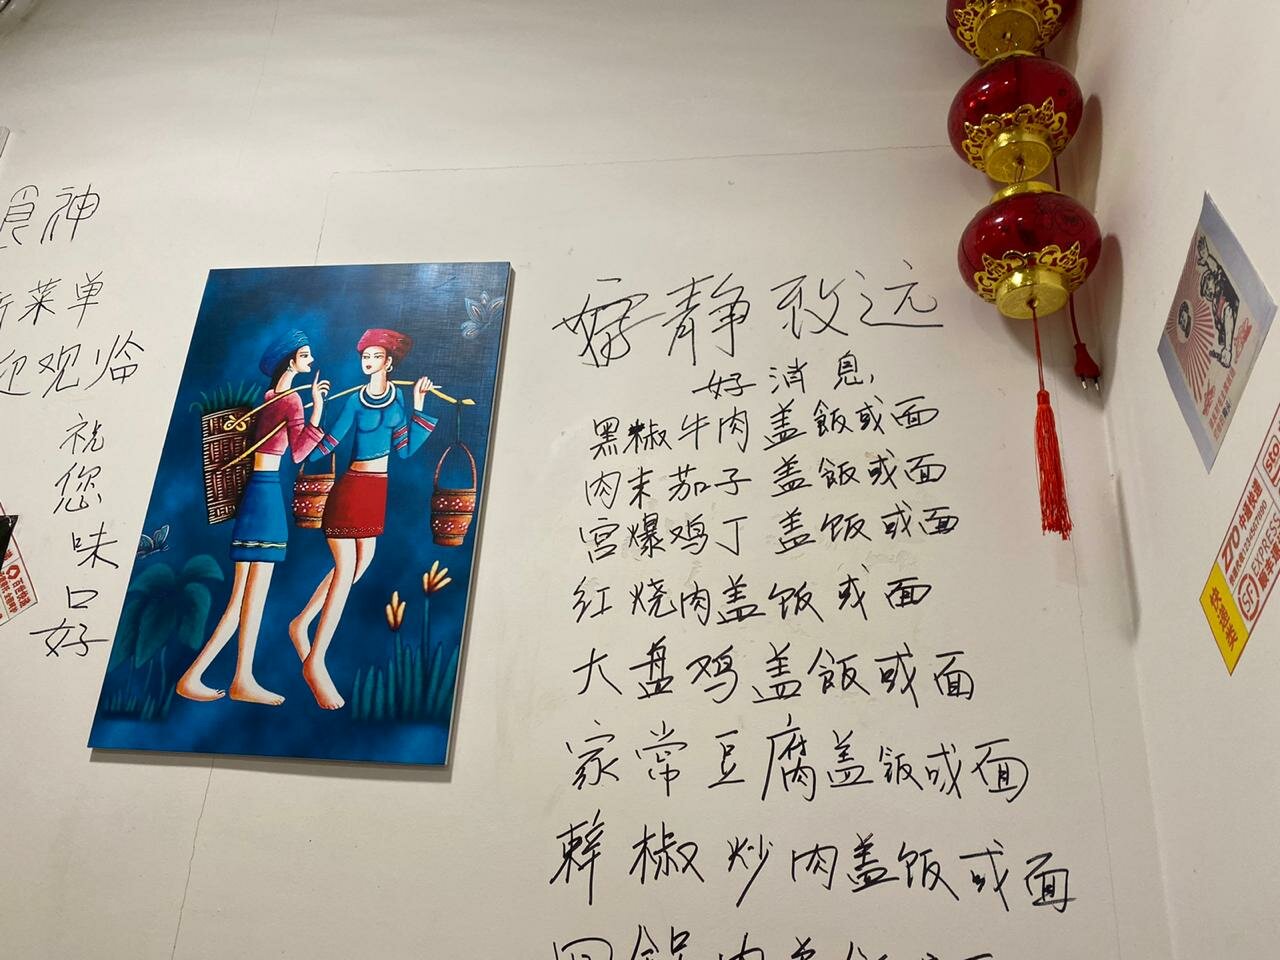 食神
新菜单
迎观临
祝
您
味
口
好
宁静致远
好消息
黑椒牛肉盖飯或面
肉末茄子盖飯或面
宫爆鸡丁盖饭或面
红烧肉盖饭或面
大盘鸡盖飯或面
家常豆腐盖饭或面
辣椒炒肉盖饭或面
回锅肉盖饭或面
中通快递
EXPRESS
快递类